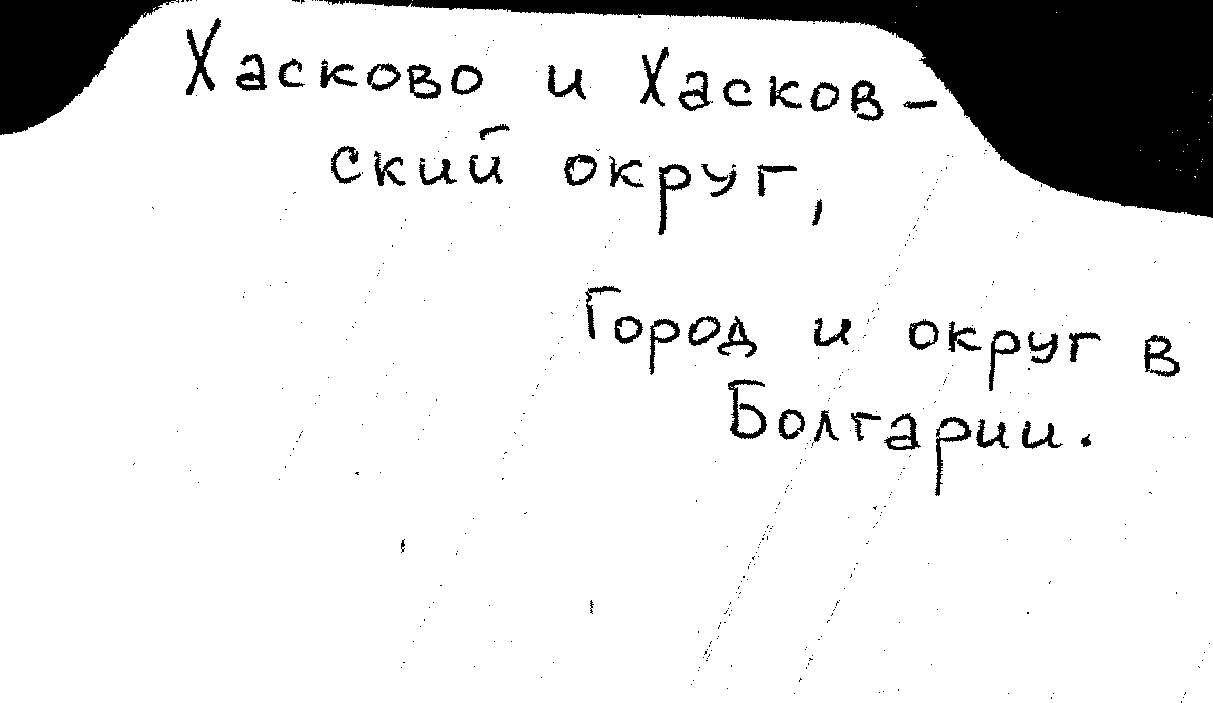 Хасково и Хасков-
ский округ,
Город и округ в
Болгарии.